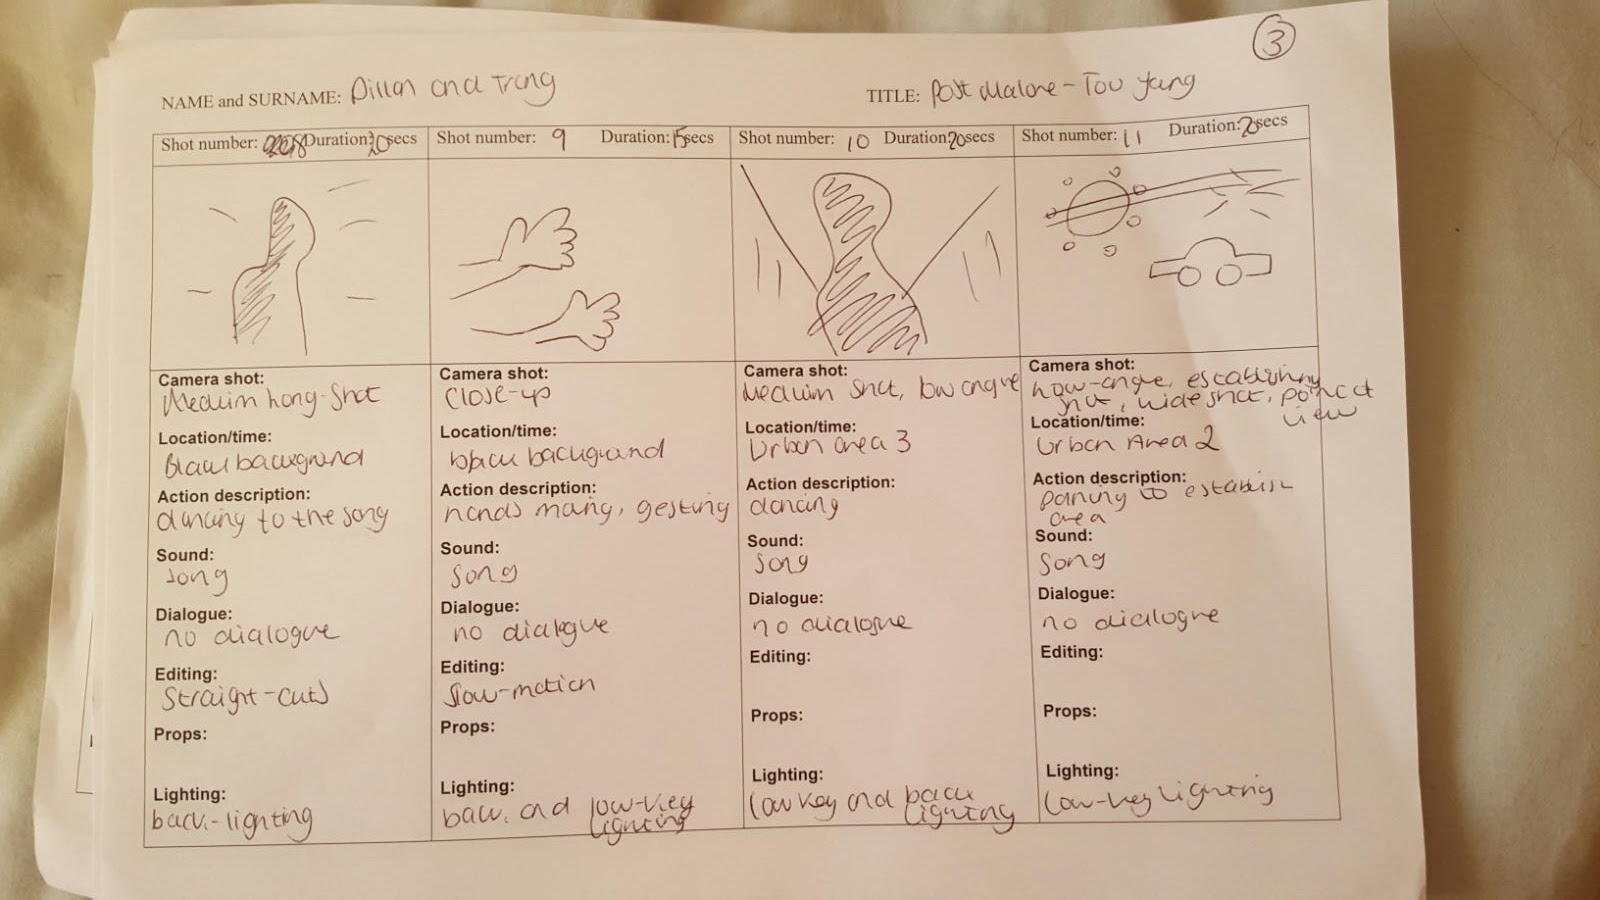 3
NAME and SURNAME: Dillan and Trang
TITLE: Post Malone - Too Yang
Shot number: 8 Duration: 20secs
Camera shot:
Medium Long-Shot
Location/time:
Black background
Action description:
dancing to the song
Sound:
song
Dialogue:
no dialogue
Editing:
Straight-cuts
Props:
Lighting:
back-lighting
Shot number: 9 Duration: 15secs
Camera shot:
Close-up
Location/time:
black background
Action description:
hands moving, gesting
Sound:
song
Dialogue:
no dialogue
Editing:
slow-motion
Props:
Lighting:
back and low-key
lighting
Shot number: 10 Duration: 20secs
Camera shot:
Medium shot, low angle
Location/time:
Urban area 3
Action description:
dancing
Sound:
song
Dialogue:
no dialogue
Editing:
Props:
Lighting:
low key and back
lighting
Shot number: 11 Duration: 20secs
Camera shot:
Low-angle, establishing
shot, wide shot, point of
view
Location/time:
Urban Area 2
Action description:
paning to establish
area
Sound:
song
Dialogue:
no dialogue
Editing:
Props:
Lighting:
low-key lighting